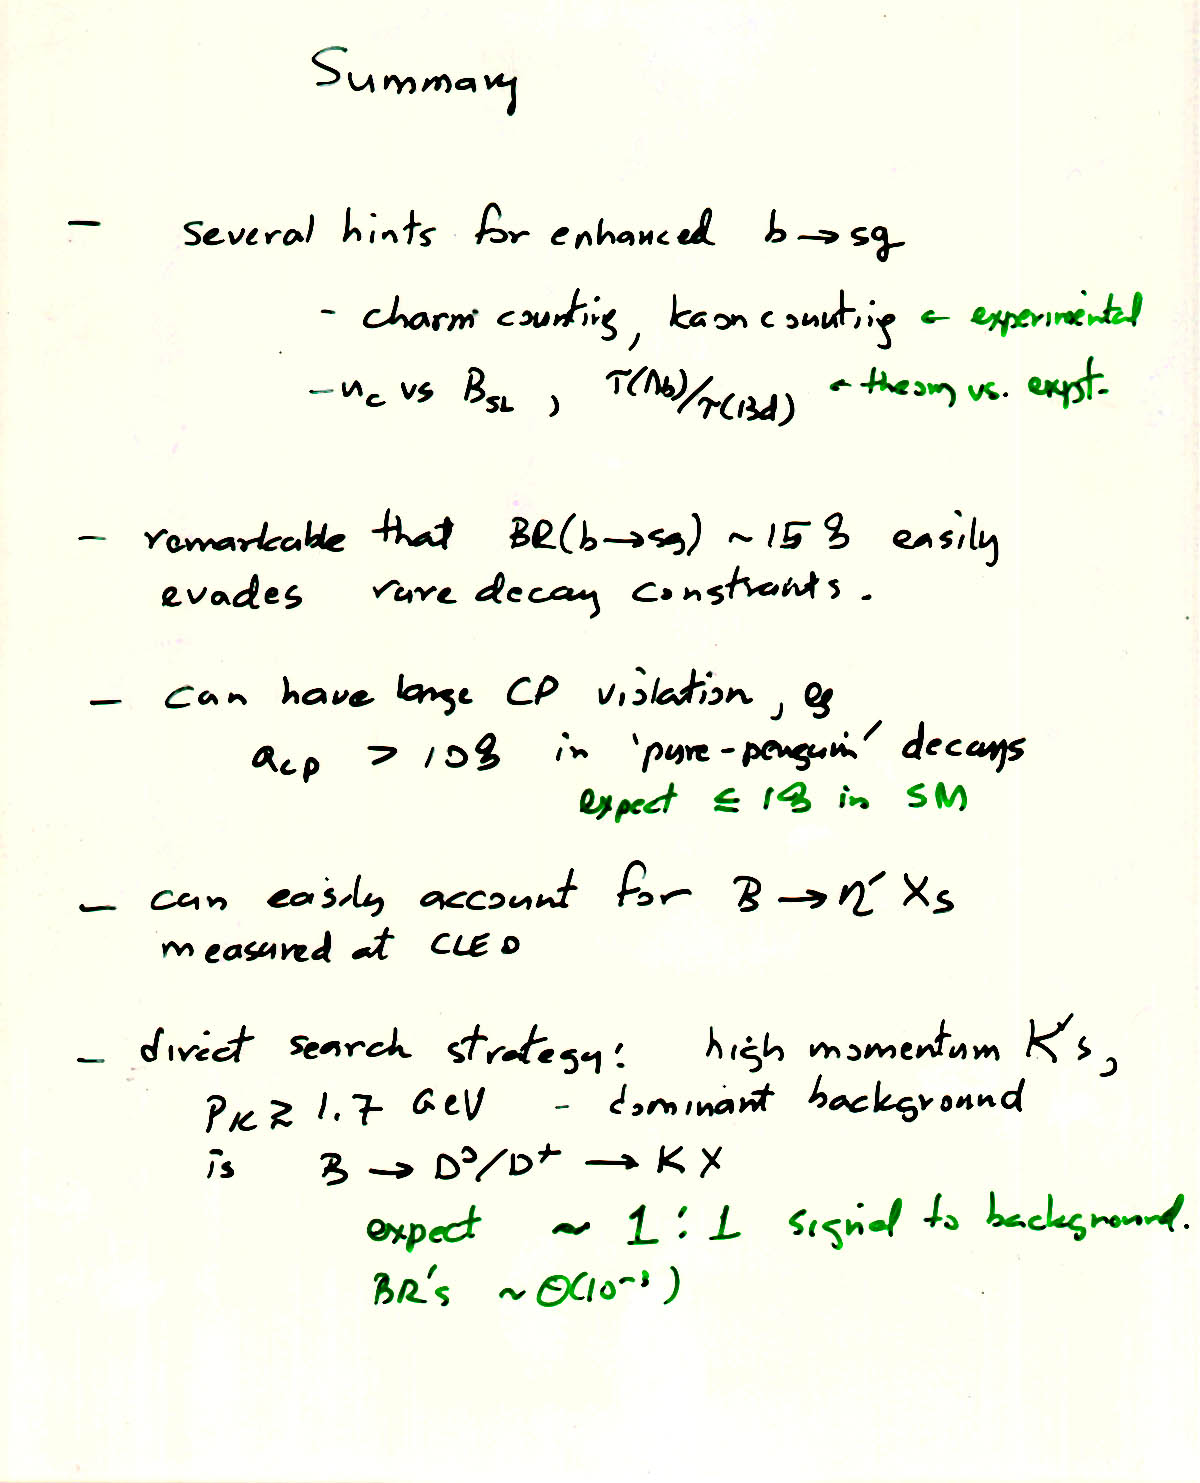 Summary
— several hints for enhanced b → sg
- charm counting, kaon counting ← experimental
- n_c vs B_SL , τ(Λb)/τ(Bd) ← theory vs. expt.
– remarkable that BR(b→sg) ~ 15% easily
evades rare decay constraints.
— can have large CP violation, eg
a_CP > 10% in 'pure-penguin' decays
expect ≤ 1% in SM
— can easily account for B → η' Xs
measured at CLEO
— direct search strategy: high momentum K's,
P_K ≳ 1.7 GeV - dominant background
is B → D⁰/D⁺ → K X
expect ~ 1 : 1 signal to background.
BR's ~ O(10⁻³)